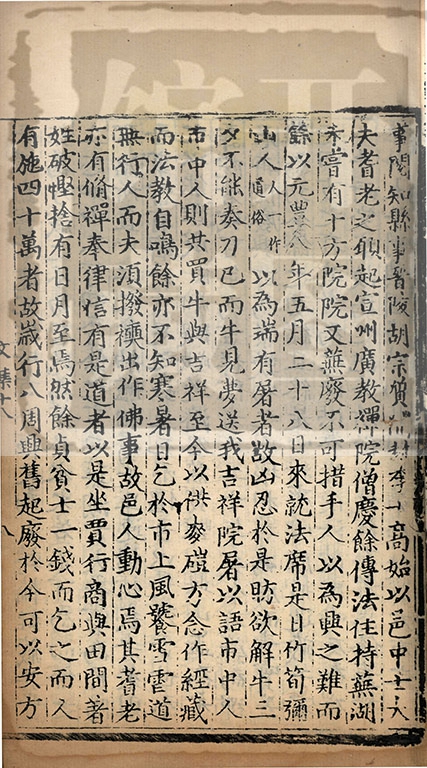 事聞知縣事晉陵胡宗質李士高始以邑中士大
夫耆老之傾起宣州廣教禪院僧慶餘傳法住持蕪湖
未嘗有十方院院又蕪廢不可措手人以為興之難而
餘以元豐八年五月二十八日來就法席是日竹筍彌
山人人一作道俗以為瑞有屠者故凶忍於是昉欲解牛三
夕不能奏刀已而牛見夢送我吉祥院屠以語市中人
市中人則共買牛與吉祥至今以供麥磑方念作經藏
而法教自鳴餘亦不知寒暑日乞於市上風饕雪雹道
無行人而夫須撥襫出作佛事故邑人動心焉其耆老
亦有脩禪奉律信有是道者以是坐賈行商與田間著
姓破慳捨有日月至焉然餘貞貧士一錢而乞之而人
有施四十萬者故歲行八周興舊起廢於今可以安方
文集十八
八